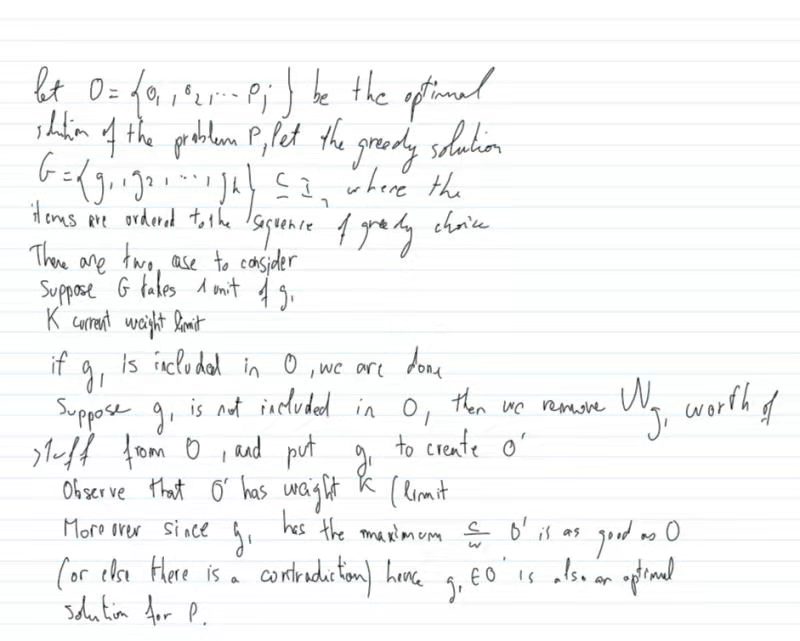 let O = {o₁, o₂, ... oⱼ} be the optimal
solution of the problem P, let the greedy solution
G = {g₁, g₂, ..., gₖ} ⊆ I, where the
items are ordered to the sequence of greedy choice
There are two case to consider
Suppose G takes 1 unit of g₁
K current weight limit
if g₁ is included in O, we are done
Suppose g₁ is not included in O, then we remove W_g₁ worth of
stuff from O, and put g₁ to create O'
Observe that O' has weight K (limit
More over since g₁ has the maximum c/w O' is as good as O
(or else there is a contradiction) hence g₁ ∈ O' is also an optimal
solution for P.